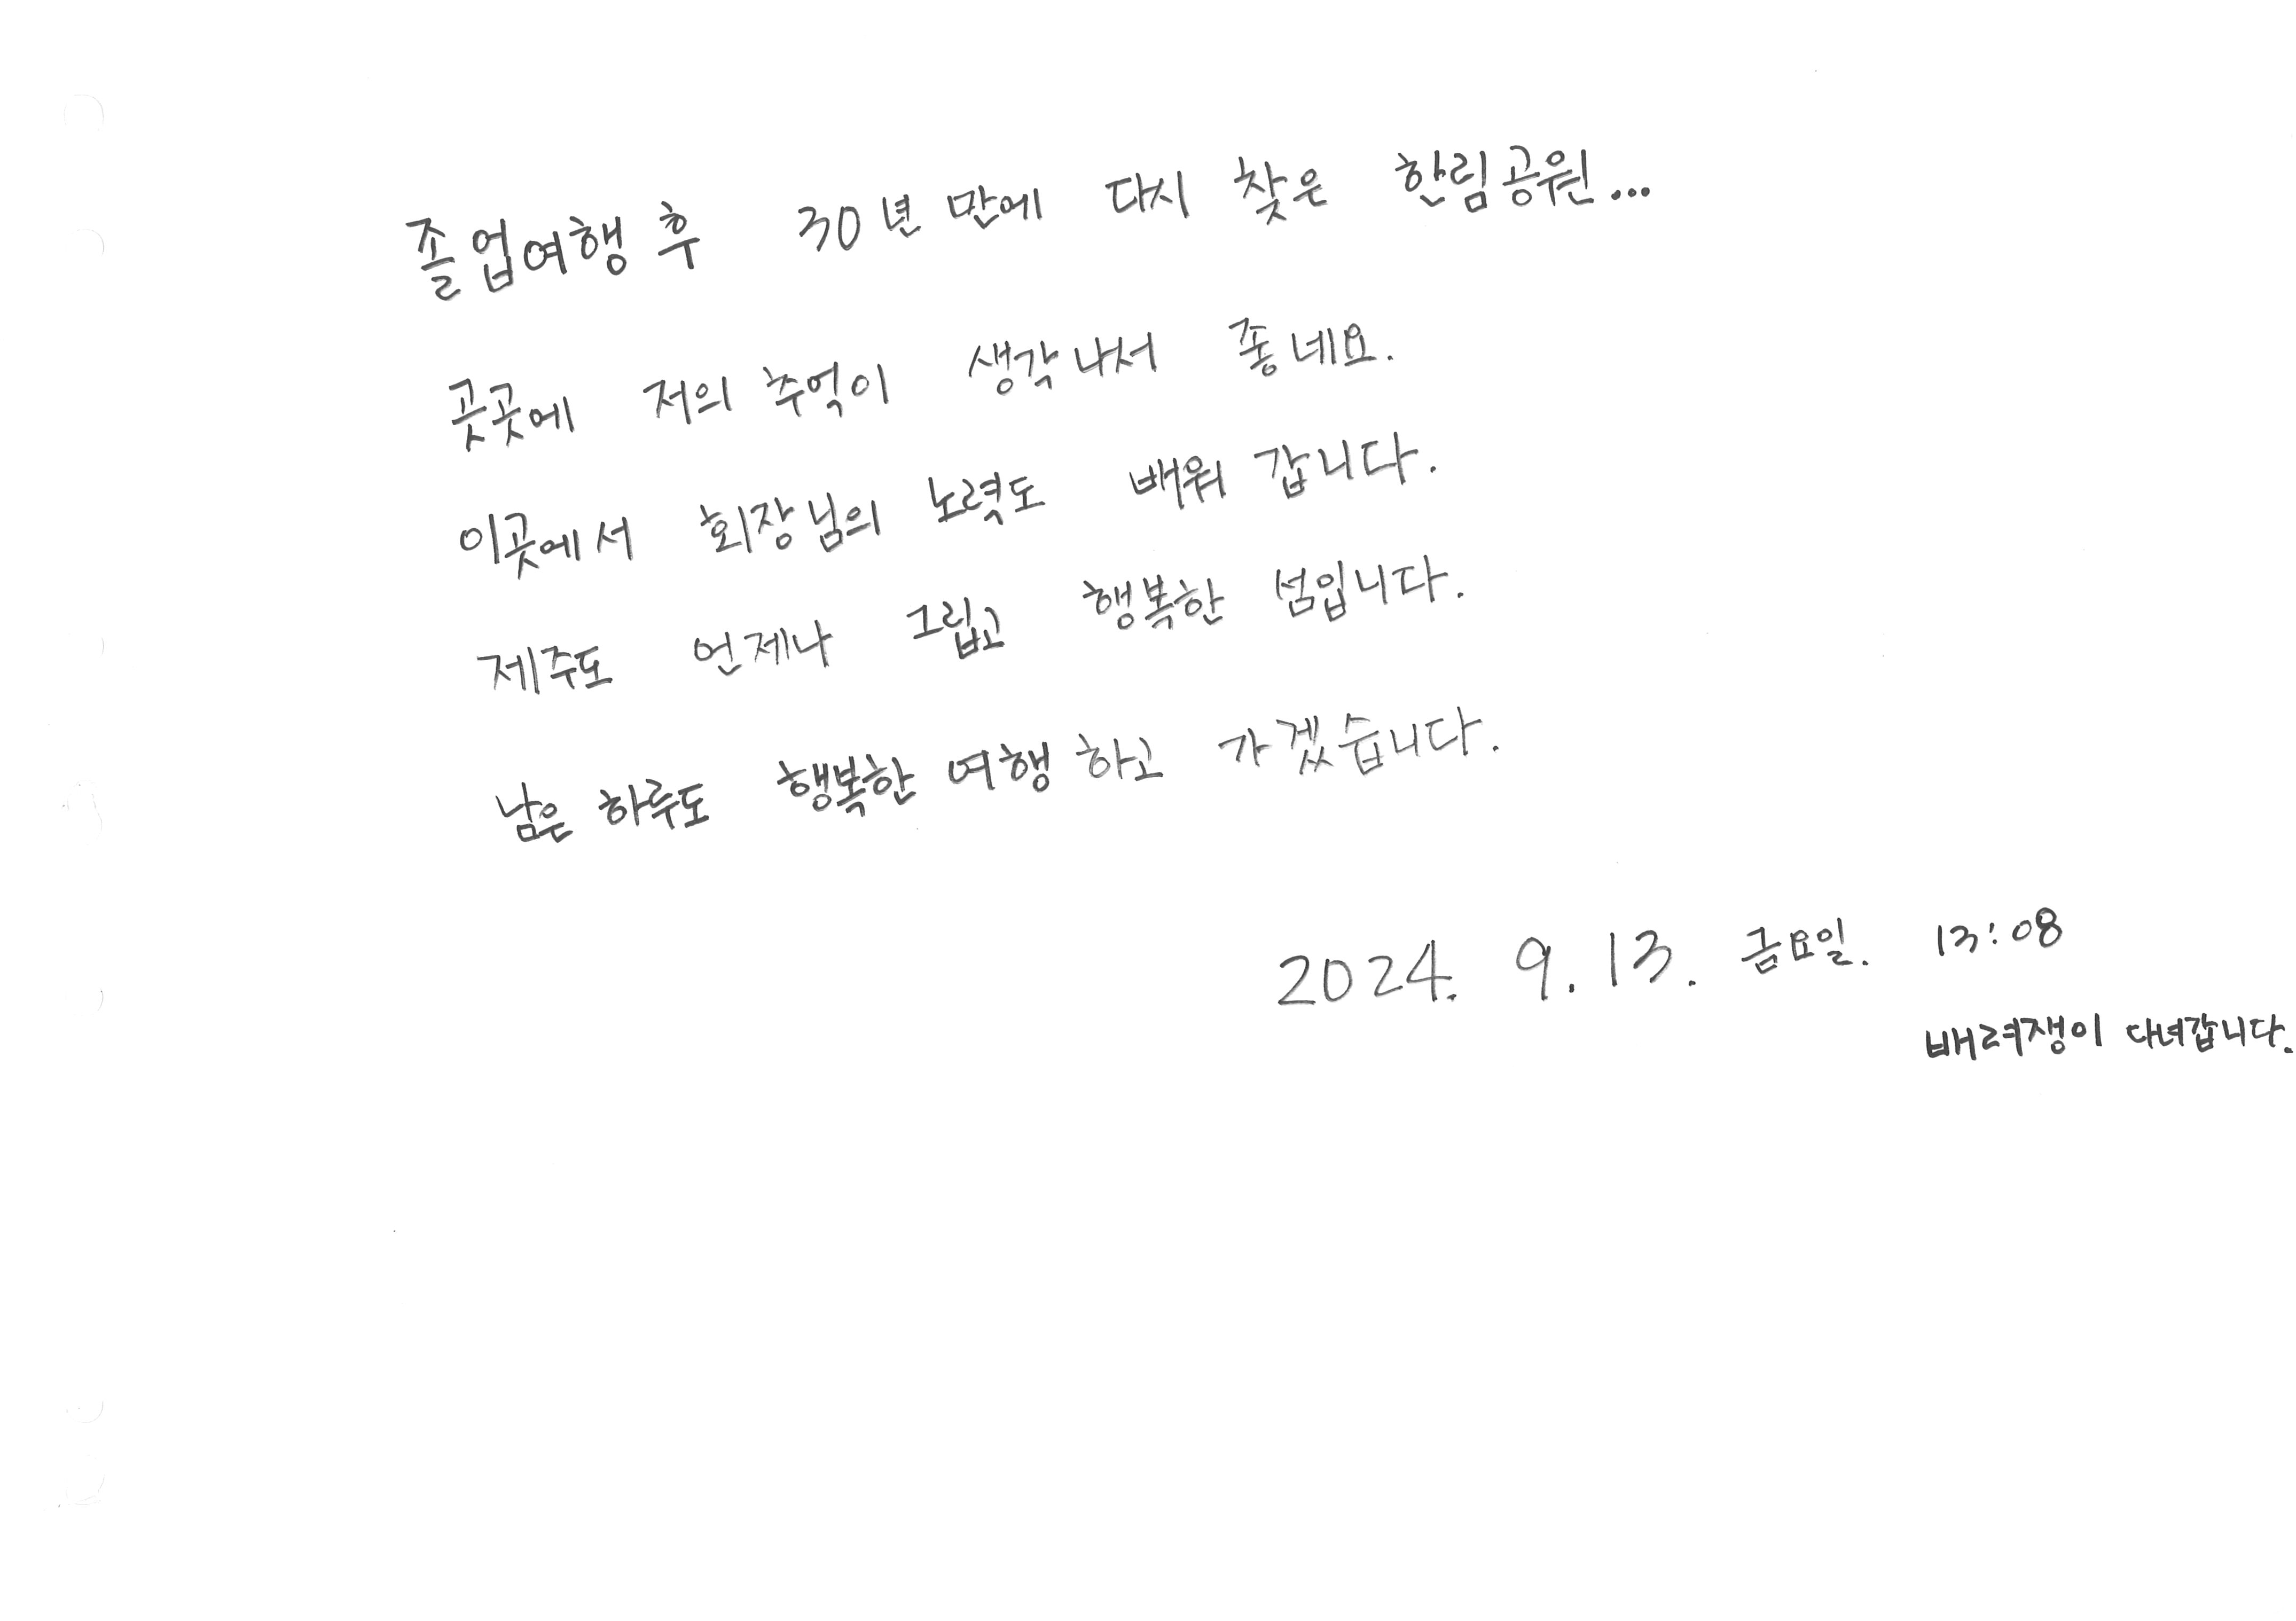 졸업여행 후 30년 만에 다시 찾은 한림공원...
곳곳에 저의 추억이 생각나서 좋네요.
이곳에서 회장님의 노력도 배워 갑니다.
제주도 언제나 그립고 행복한 섬입니다.
남은 하루도 행복한 여행 하고 가겠습니다.
2024. 9. 13. 금요일. 13:08
배려쟁이 다녀갑니다.